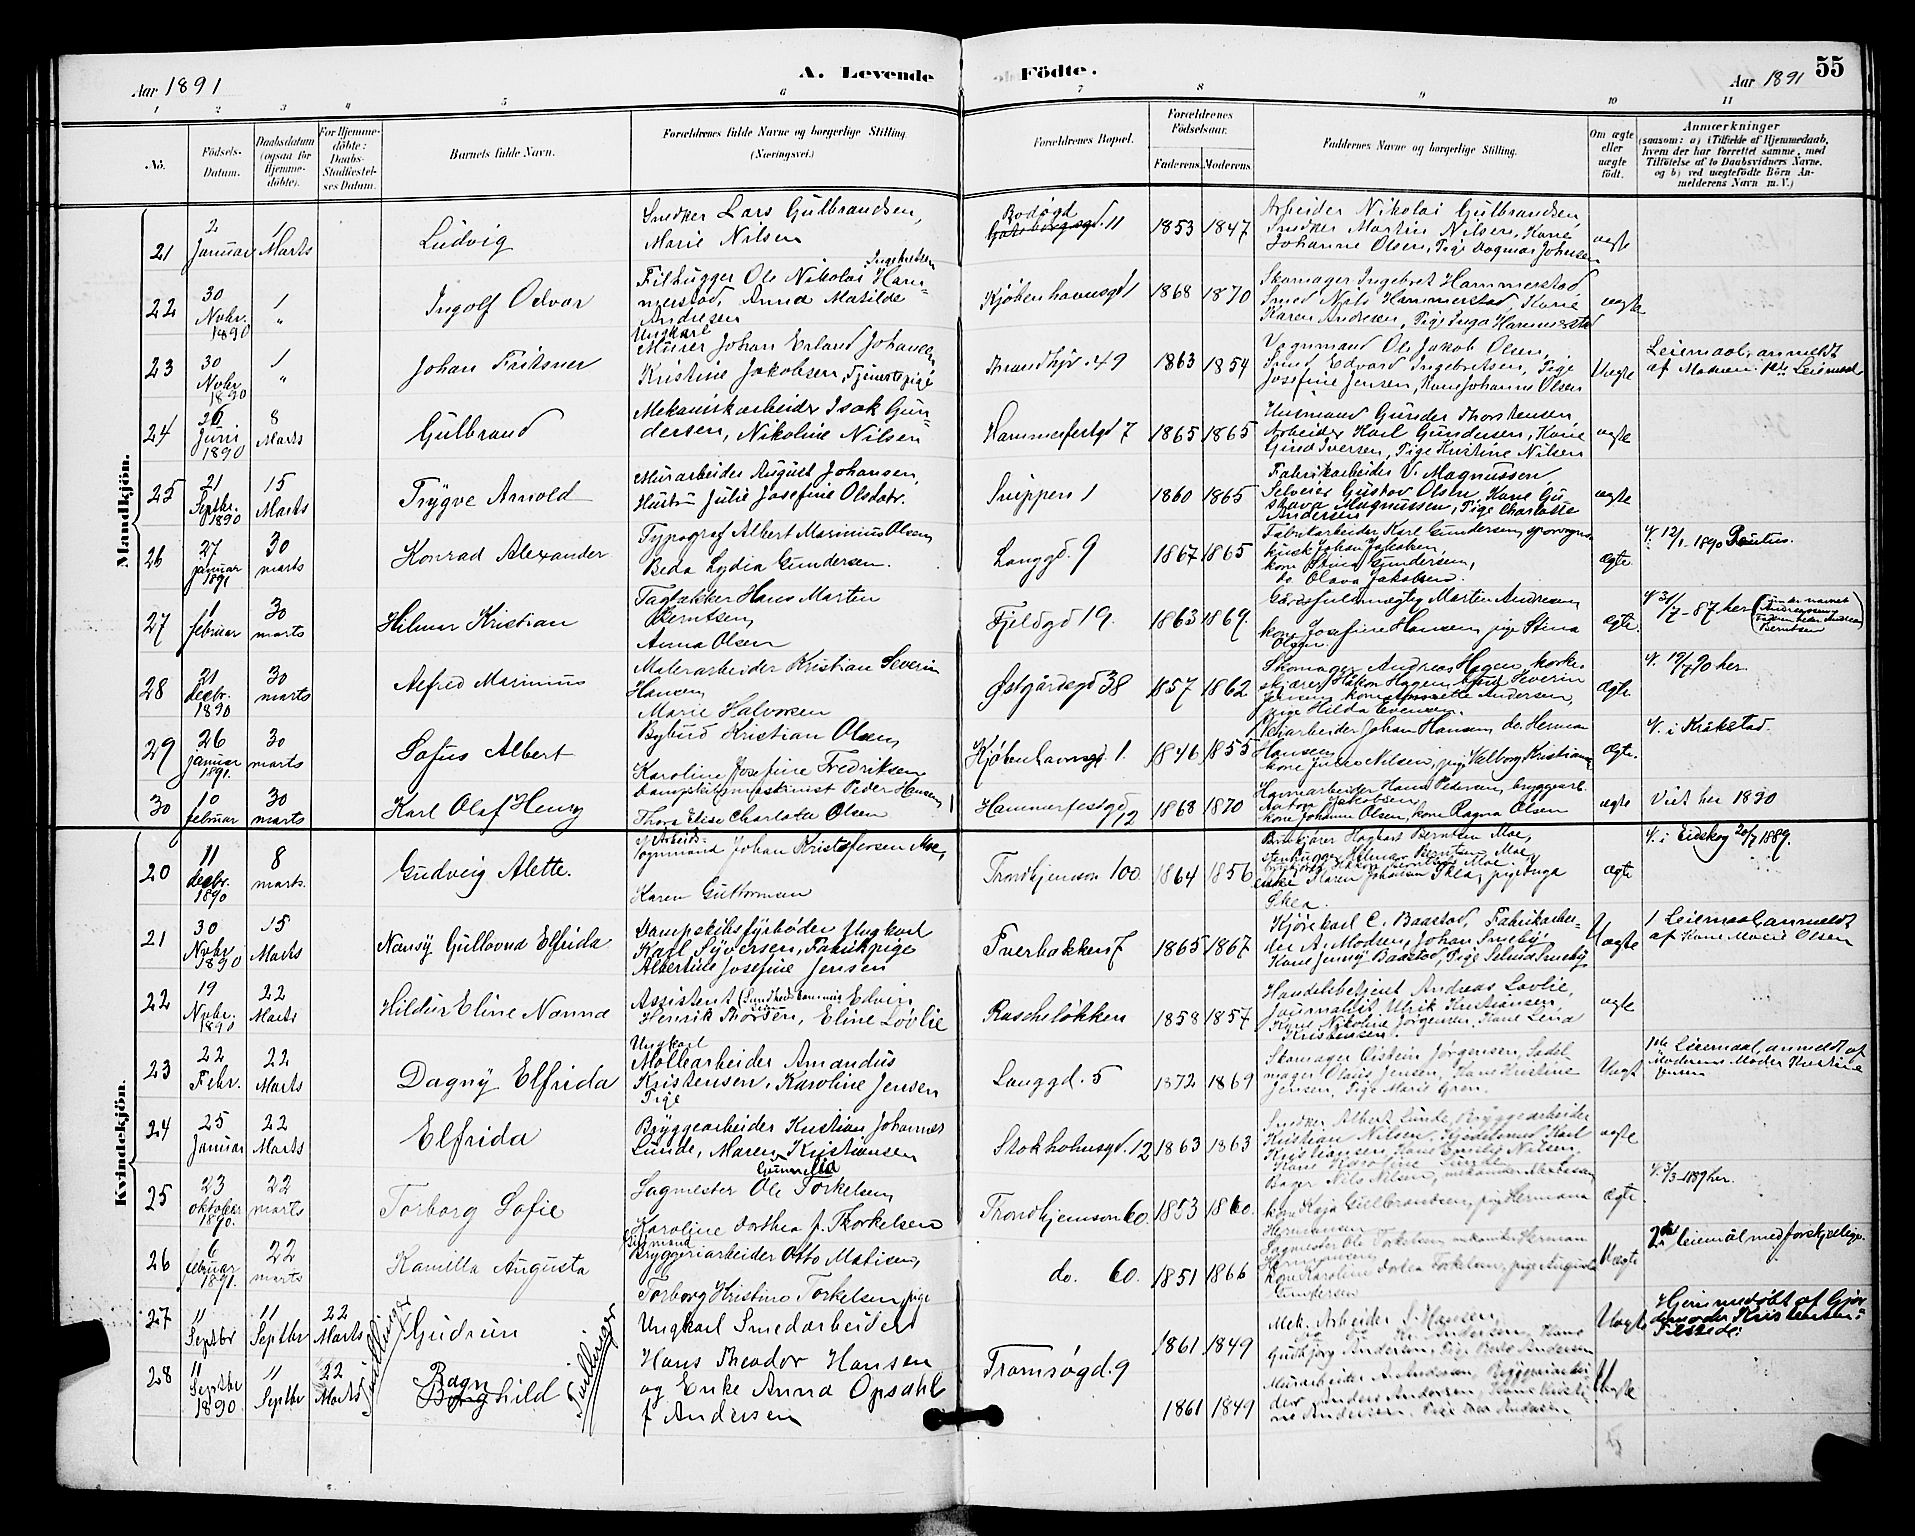 Aar 1891
A. Levende
Födte.
Aar 1891
55
1 2 3 4 5 6 7 8 9 10 11
No.
Födsels-
Datum.
Daabsdatum
(ogsaa for
Hjemme-
döbte).
For Hjemme-
döbte:
Daabs-
Stadfæstel-
ses Datum.
Barnets fulde Navn.
Forældrenes fulde Navne og borgerlige Stilling.
(Næringsvei.)
Forældrenes Bopæl.
Forældrenes
Födselsaar.
Faderens. Moderens.
Faddernes Navne og borgerlige Stilling.
Om ægte
eller
uægte
födt.
Anmærkninger
(saasom: a) i Tilfælde af Hjemmedaab,
hvem der har forrettet samme, med
Tilföielse af to Daabsvidners Navne,
og b) ved uægtefödte Börn An-
melderens Navn m. V.)
Mandkjön.
21
2
Januar
1
Marts
Ludvig
Snedker Lars Gulbrandsen,
Marie Nilsen
Bodøgd
Gøteborgsgd. 11
1853 1847
Arbeider Nikolai Gulbrandsen,
Snedker Martin Nilsen, Kone
Johanne Olsen, Pige Dagmar Johnsen
ægte
22
30
Nobr.
1890
1
"
Ingolf Odvar
Ingebretsen
Filhugger Ole Nikolai Ham-
merstad, Anna Matilde
Andresen
Kjøbenhavnsgd 1
1868 1870
Skomager Ingebret Hammerstad
Smed Nils Hammerstad, Kone
Karen Andresen, Pige Inga Hammerstad
ægte
23
30
Nobr.
1890
1
"
Johan Fritsner
Ungkarl
Murer Johan Erland Johansen
Kristine Jakobsen, Tjenestepige
Trondhjv. 49
1863 1854
Vognmand Ole Jakob Olsen,
Smed Edvard Ingebretsen, Pige
Josefine Jensen, Kone Johanne Olsen
Uægte
Leiemaal, anmeldt
af Moderen. 1ste Leiemaal
24
26
Juni
1890
8
Marts
Gulbrand
Mekaniskarbeider Isak Gun-
dersen, Nikoline Nilsen
Hammerfestgd 7
1865 1865
Husmand Gunder Thorstensen
Arbeider Karl Gundersen, Kone
Gina Iversen, Pige Kristine Nilsen
ægte
25
21
Septbr.
1890
15
Marts
Trygve Arnold
Murarbeider August Johansen,
Hustru Julie Josefine Olsdatr.
Snippen 1
1860 1865
Fabrikarbeider V. Magnussen,
Selveier Gustav Olsen, Kone Gu-
stava Magnussen, Pige Charlotte
Andersen
ægte
26
27
januar
1891
30
marts
Konrad Alexander
Typograf Albert Marinius Olsen,
Beda Lydia Gundersen.
Langgd. 9
1867 1865
Fabrikarbeider Karl Gundersen, sporvogns-
kusk Johan Jakobsen,
kone Stina Gundersen,
do Olava Jakobsen.
ægte
V. 12/1 1890 Paulus.
27
1
februar
30
marts
Hilmar Kristian
Tagtækker Hans Martin
Berntsen,
Anna Olsen
Fjeldgd 19.
1863 1869.
Gårdsfuldmægtig Martin Andresen
kone Josefine Hansen, pige Stina
Olsen
ægte.
V. 31/7-87 her
28
21
decbr.
1890
30
marts
Alfred Marinius
Malerarbeider Kristian Severin
Hansen
Marie Halvorsen
Østgårdsgd 38
1857 1862
Skomager Andreas Hagen, korke-
skjærer Håkon Hagen, Severin
Jensen, kone Andersen,
pige Hilda Evensen.
ægte
V. 19/7 90 her.
29
26
januar
1891.
30
marts
Sofus Albert
Bybud Kristian Olsen,
Karoline Josefine Fredriksen
Kjøbenhavnsgd. 1.
1846 1855
Johan Hansen, do. Herman
Hansen,
kone Julie Nilsen, pige Valborg Kristiansen
ægte.
V. i Kråkstad.
30
10
februar
30
marts
Karl Olaf Henry
Dampskibsmaskinist Peder Hansen,
Thora Elise Charlotte Olsen
Hammerfestgd 12
1868 1870
Havnarbeider Hans Pedersen, bryggearb.
Anton Jakobsen,
kone Johanne Olsen, kone Ragna Olsen
ægte
Viet her 1890
Kvindekjön.
20
11
decbr.
1890
8
marts.
Gudveig Alette.
Arbeids-
Vognmand Johan Kristofersen Moe,
Karen Guttormsen
Trondhjemsvn 100.
1864 1856
Hagbart Berntsen Moe,
Hilmar Berntsen Moe,
enke Karen Johansen Skea, pige Inga
Skea.
ægte
V. i Eidskog 20/7 1889.
21
30
Nobr.
1890
15
Marts
Nansy Gullovna Elfrida
Dampskibsfyrbøder Ungkarl
Karl Syversen, Fabrikpige
Albertine Josefine Jensen
Tverbakken 7
1865 1867
Kjørekarl C. Baastad, Fabrikarbei-
der A. Modsen, Johan Smeby
Kone Jenny Baastad, Pige Selma Smeby
Uægte
1 Leiemaal, anmeldt
af Kone Marie Olsen
22
19
Nobr.
1890
22
Marts
Hildur Eline Nanna
Assistent (Sundhedskommis) Edvin
Henrik Thorsen, Eline Løvlie
Rascheløkken
1858 1857
Handelsbetjent Andreas Løvlie,
Journalist Ulrik Kristiansen,
Kone Nikoline Jørgensen, Kone Lena
Kristensen
ægte
23
22
Febr.
22
Marts
Dagny Elfrida
Ungkarl
Møllearbeider Amandus
Kristensen, Karoline Jensen
Pige
Langgd. 5
1872 1869
Skomager Øistein Jørgensen, Sadel-
mager Olaus Jensen, Kone Kristine
Jensen, Pige Marie Gren.
Uægt
1ste Leiemaal, anmeldt af
Moderens Moder Kristine
Jensen
24
25
Januar
22
Marts
Elfrida
Bryggearbeider Kristian Johannes
Lunde, Maren Kristiansen
Stokholmsgd. 12
1863 1863
Snedker Albert Lunde, Bryggearbeider
Kristian Nilsen, Karl
Kristiansen, Kone Emily Nilsen,
Kone Karoline Lunde
ægte
25
23
oktober
1890.
22
marts
Torborg Sofie
Gunerild
Sagmester Ole Torkelsen,
Karoline Dorthea f. Thorkelsen
Trondhjemsvn 60.
1853 1860.
Bager Nils Nilsen,
kone Kaja Gulbrandsen, pige Hermana
Hermansen
ægte
V. 3/3-1889 her.
26
6
februar
1891.
22
marts
Kamilla Augusta
Bryggeriarbeider Otto Matisen,
Torborg Kristine Torkelsen, pige
do. 60.
1851 1866
Sagmester Ole Torkelsen, Herman
Hermansen,
kone Karoline Dortea Torkelsen, pige Augusta
Gundersen
Uægte
2det leiemål med forskjellige.
27
11
Septbr
11
Septbr
22
Marts
Tvillinger
Gudrun
Tvillinger
Ungkarl Smedarbeider
1861 1849
Mek. Arbeider S. Hansen,
Gudbjørg Andersen, Pige Berte Andersen
Uægte
Hjemmedøbt af Gjor-
demoder Kristiansen
28
11
Septbr
1890.
11
Septbr
22
Marts
Ragn
Borghild
Hans Theodor Hansen
og Enke Anna Opsahl
f Andersen
Tromsøgd. 9
1861 1849
Murarbeider A. Andersen, Bryggearbei-
der Anders Andersen, Kone Kristi-
ne Andersen, Pige Andersen
Uægte